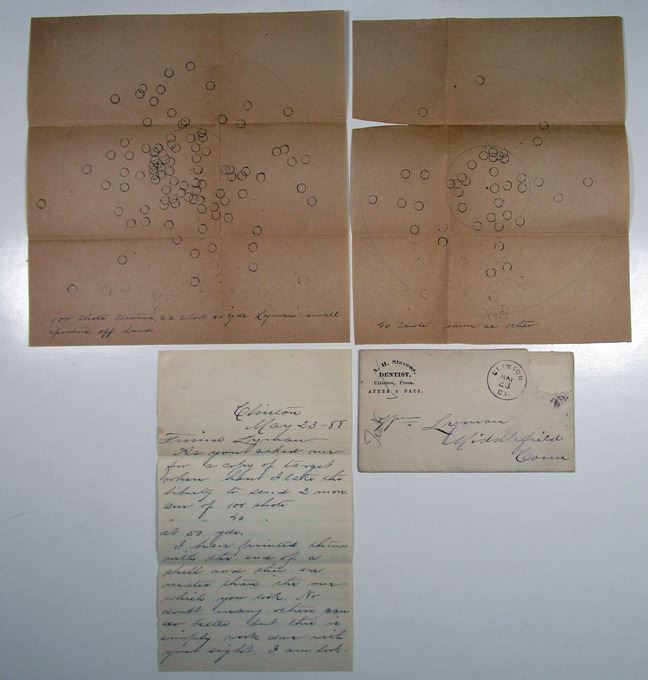 100 Shots Stevens .22 Short 50 yds Lyman small
off hand
40 Shots same as other
A. H. Stevens,
DENTIST,
Clinton, Conn.
AFTER 5 DAYS.
CLINTON
MAY
23
CT.
Lyman
Middlefield
Conn
Clinton
May 23-88
Friend Lyman
As you asked me
for a copy of target
when here I take the
liberty to send 2 more
one of 100 shots
" " 40 "
at 50 yds.
I have printed them
with the end of a
shell and they are
neater than the one
which you took. No
doubt many others can
do better but this is
simply work done with
your sight. I am look-